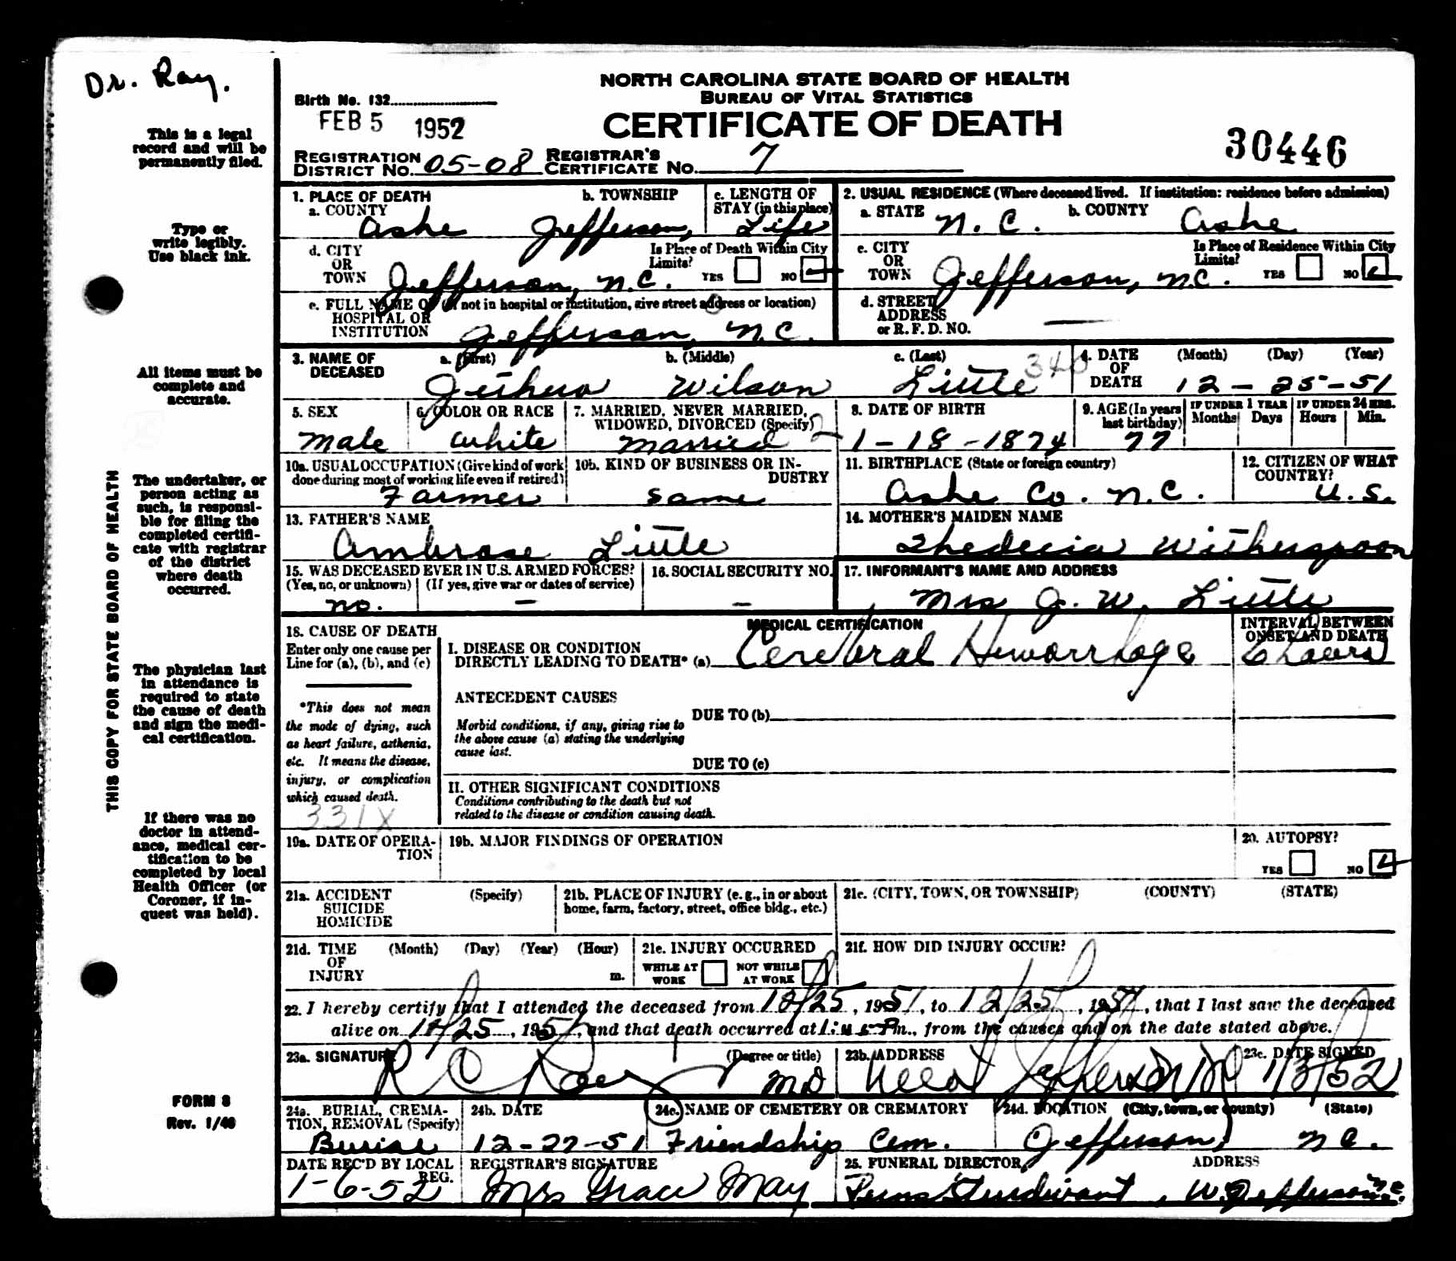 Dr. Ray.
This is a legal
record and will be
permanently filed.
Type or
write legibly.
Use black ink.
All items must be
complete and
accurate.
The undertaker, or
person acting as
such, is responsi-
ble for filing the
completed certifi-
cate with registrar
of the district
where death
occurred.
The physician last
in attendance is
required to state
the cause of death
and sign the medi-
cal certification.
If there was no
doctor in attend-
ance, medical cer-
tification to be
completed by local
Health Officer (or
Coroner, if in-
quest was held).
FORM 8
Rev. 1/49
THIS COPY FOR STATE BOARD OF HEALTH
NORTH CAROLINA STATE BOARD OF HEALTH
BUREAU OF VITAL STATISTICS
CERTIFICATE OF DEATH
Birth No. 132
FEB 5 1952
30446
REGISTRATION DISTRICT No. 05-08 REGISTRAR'S CERTIFICATE No. 7
1. PLACE OF DEATH
a. COUNTY Ashe
b. TOWNSHIP Jefferson,
c. LENGTH OF STAY (in this place) Life
2. USUAL RESIDENCE (Where deceased lived. If institution: residence before admission)
a. STATE N. C. b. COUNTY Ashe
d. CITY OR TOWN Jefferson, N.C.
Is Place of Death Within City Limits? YES NO
c. CITY OR TOWN Jefferson, N.C.
Is Place of Residence Within City Limits? YES NO
e. FULL NAME OF (If not in hospital or institution, give street address or location)
HOSPITAL OR INSTITUTION Jefferson, N.C.
d. STREET ADDRESS or R. F. D. NO. —
3. NAME OF DECEASED
a. (First) b. (Middle) Wilson c. (Last) Little 340
4. DATE OF DEATH (Month) (Day) (Year) 12-25-51
5. SEX Male
6. COLOR OR RACE White
7. MARRIED, NEVER MARRIED, WIDOWED, DIVORCED (Specify) Married 2
8. DATE OF BIRTH 1-18-1874
9. AGE (In years last birthday) 77
IF UNDER 1 YEAR Months Days
IF UNDER 24 HRS. Hours Min.
10a. USUAL OCCUPATION (Give kind of work done during most of working life even if retired) Farmer
10b. KIND OF BUSINESS OR INDUSTRY Same
11. BIRTHPLACE (State or foreign country) Ashe Co. N.C.
12. CITIZEN OF WHAT COUNTRY? U.S.
13. FATHER'S NAME Ambrose Little
14. MOTHER'S MAIDEN NAME Witherspoon
15. WAS DECEASED EVER IN U.S. ARMED FORCES?
(Yes, no, or unknown) (If yes, give war or dates of service)
no. —
16. SOCIAL SECURITY NO. —
17. INFORMANT'S NAME AND ADDRESS
Mrs J. W. Little
MEDICAL CERTIFICATION
INTERVAL BETWEEN ONSET AND DEATH
18. CAUSE OF DEATH
Enter only one cause per
Line for (a), (b), and (c)
*This does not mean
the mode of dying, such
as heart failure, asthenia,
etc. It means the disease,
injury, or complication
which caused death.
331X
I. DISEASE OR CONDITION
DIRECTLY LEADING TO DEATH* (a) Cerebral Hemorrhage 6 hours
ANTECEDENT CAUSES
DUE TO (b)
Morbid conditions, if any, giving rise to
the above cause (a) stating the underlying
cause last.
DUE TO (c)
II. OTHER SIGNIFICANT CONDITIONS
Conditions contributing to the death but not
related to the disease or condition causing death.
19a. DATE OF OPERATION
19b. MAJOR FINDINGS OF OPERATION
20. AUTOPSY?
YES NO
21a. ACCIDENT SUICIDE HOMICIDE (Specify)
21b. PLACE OF INJURY (e. g., in or about home, farm, factory, street, office bldg., etc.)
21c. (CITY, TOWN, OR TOWNSHIP) (COUNTY) (STATE)
21d. TIME OF INJURY (Month) (Day) (Year) (Hour) m.
21e. INJURY OCCURRED
WHILE AT WORK NOT WHILE AT WORK
21f. HOW DID INJURY OCCUR?
22. I hereby certify that I attended the deceased from 12/25, 1951, to 12/25, 1951, that I last saw the deceased
alive on 12/25, 1951, and that death occurred at m., from the causes and on the date stated above.
23a. SIGNATURE R C Ray (Degree or title) MD
23b. ADDRESS West Jefferson NC
23c. DATE SIGNED 1/3/52
24a. BURIAL, CREMATION, REMOVAL (Specify) Burial
24b. DATE 12-27-51
24c. NAME OF CEMETERY OR CREMATORY Friendship Cem.
24d. LOCATION (City, town, or county) (State) Jefferson, N.C.
DATE REC'D BY LOCAL REG. 1-6-52
REGISTRAR'S SIGNATURE Mrs Grace May
25. FUNERAL DIRECTOR ADDRESS
Sturdivant, W. Jefferson N.C.